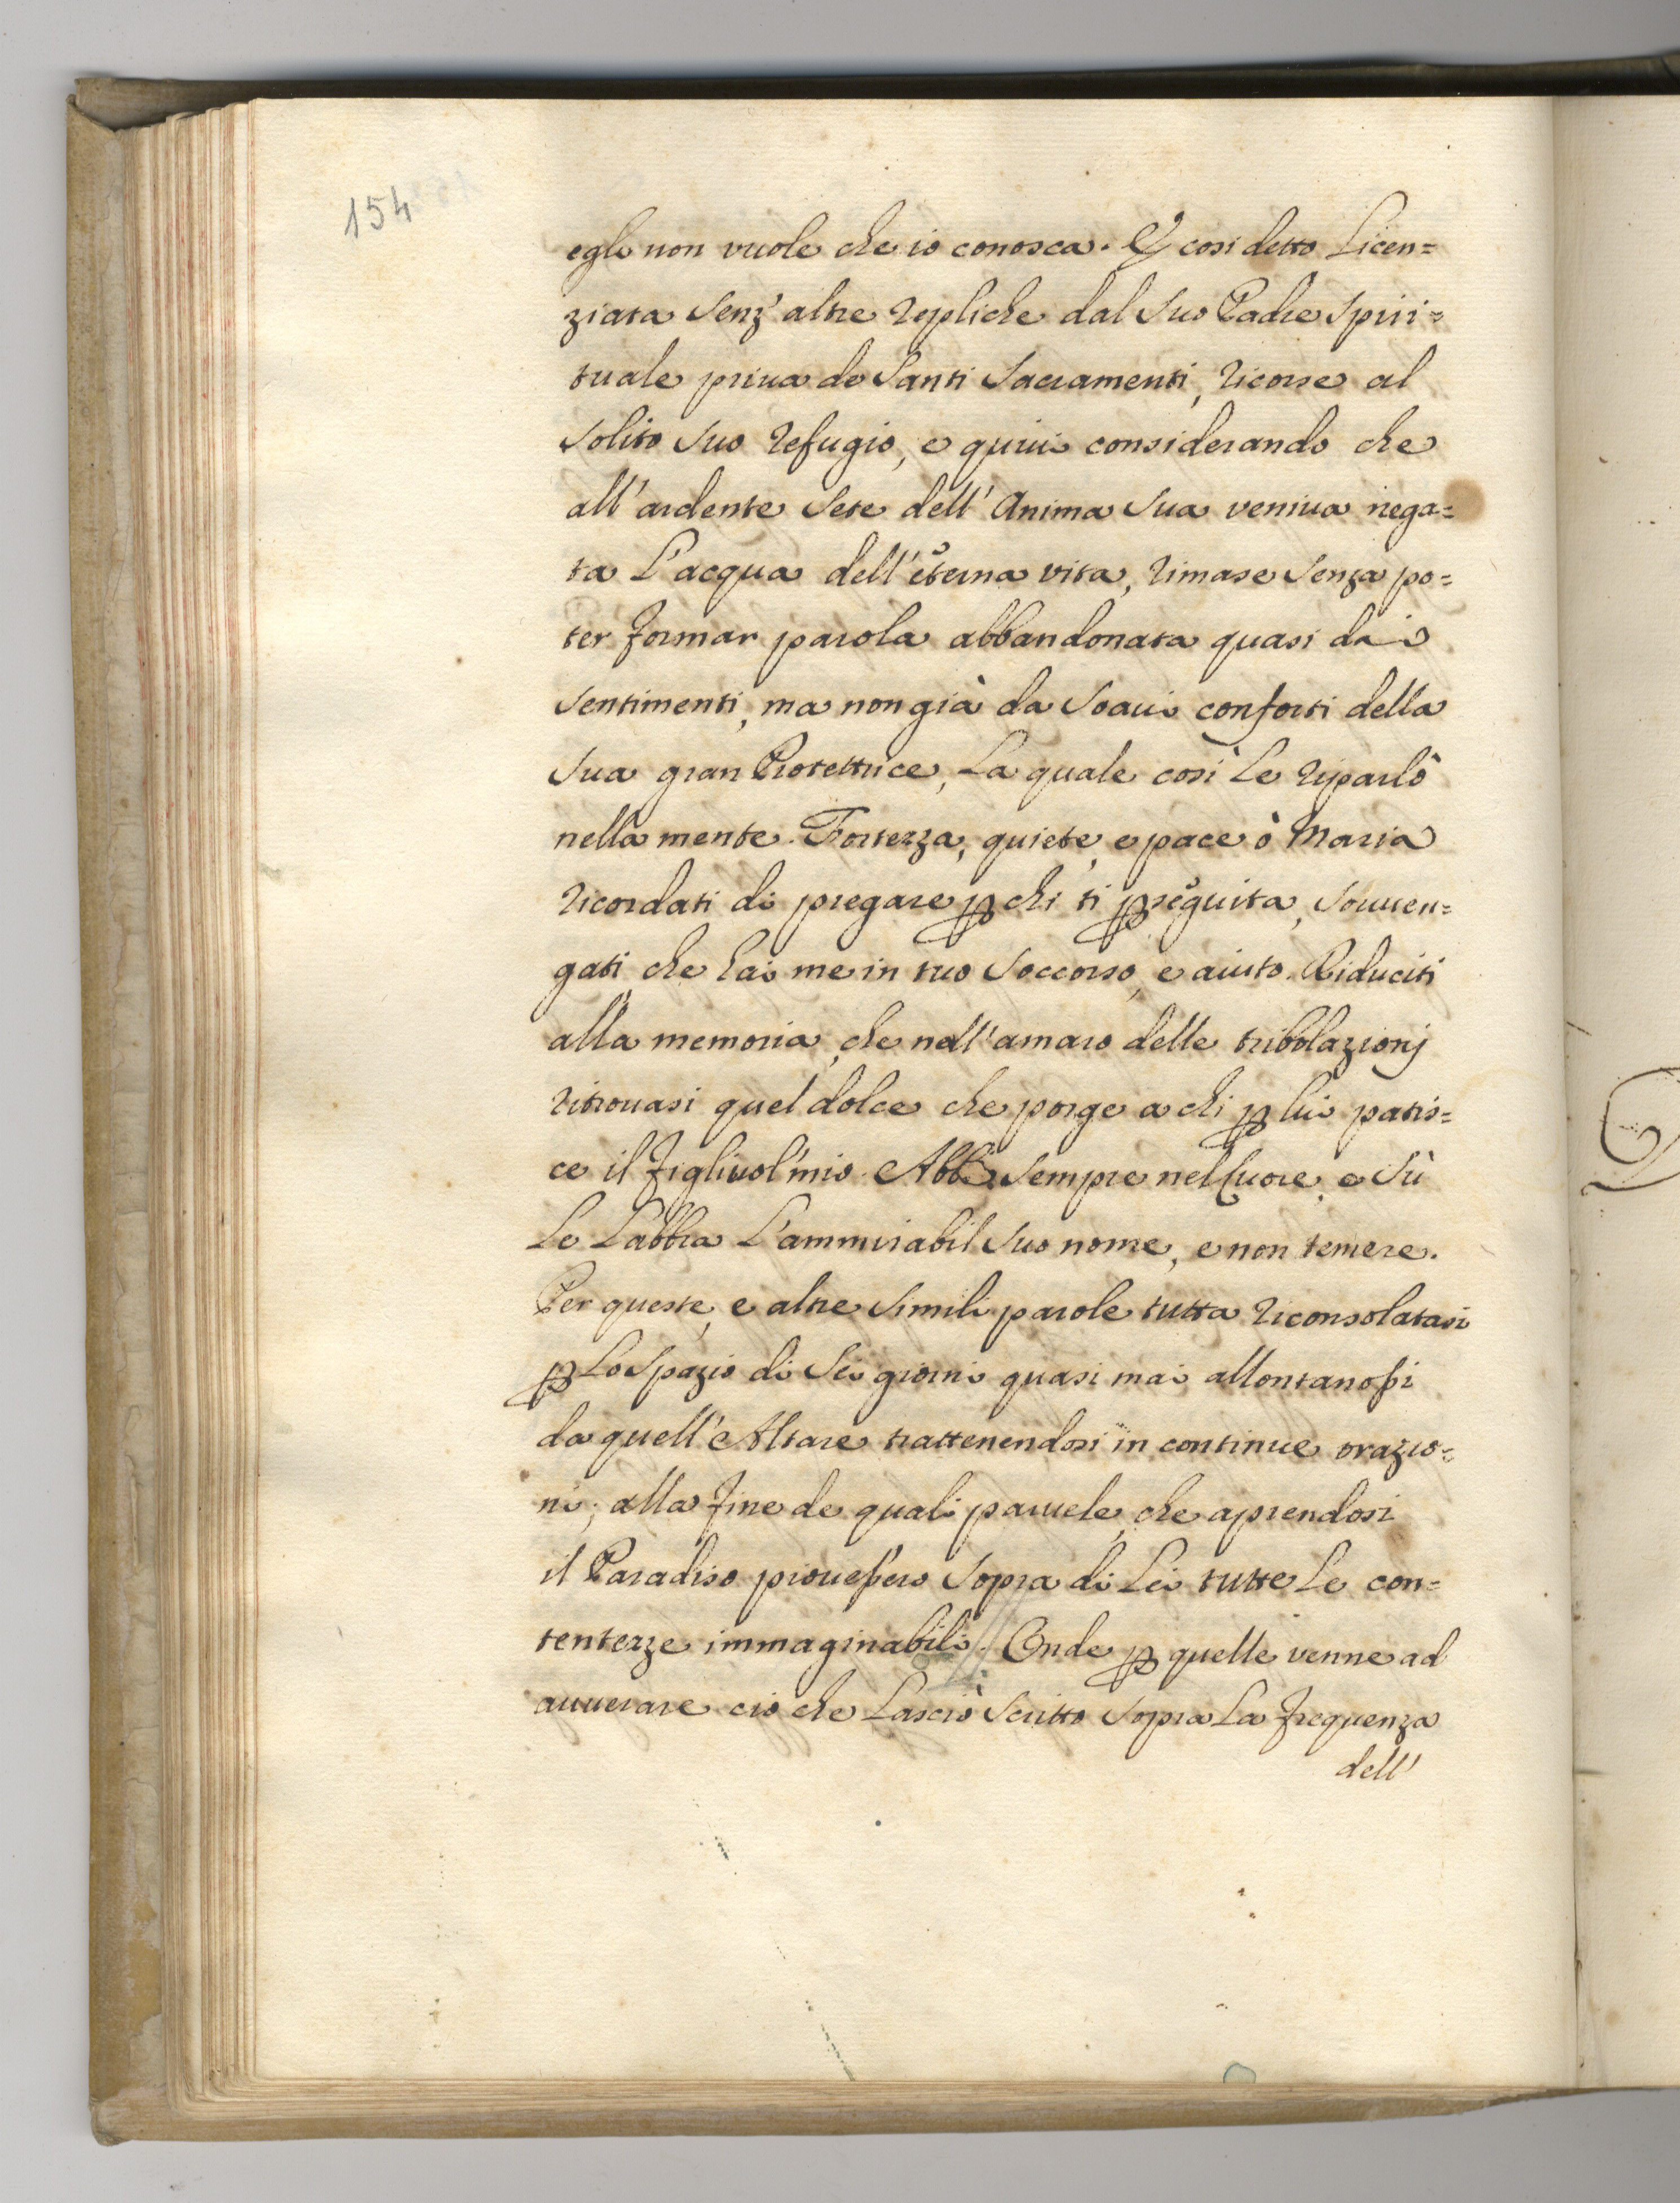 154
egli non vuole che io conosca. E cosi detto Licen=
ziata senz'altre repliche dal suo Padre Spiri=
tuale priua de Santi Sacramenti, ricorse al
solito suo refugio, e quiui considerando che
all'ardente sete dell'Anima sua veniua nega=
ta L'acqua dell'eterna vita, rimase senza po=
ter formar parola abbandonata quasi dai
sentimenti, ma non già da soaui conforti della
sua gran Protettrice, La quale così Le riparlò
nella mente. Fortezza, quiete, e pace ò Maria
ricordati di pregare ꝑ chi ti ꝑseguita, souuen=
gati, che hai me in tuo soccorso, e aiuto. Riduciti
alla memoria, che nell'amaro delle tribolazionj
ritrouasi quel dolce che porge a chi ꝑ lui patis=
ce il Figliuol mio. Abbi sempre nel Cuore, e sù
Le Labbra L'ammirabil suo nome, e non temere.
Per queste, e altre simili parole tutta riconsolatasi
ꝑ Lo spazio di sei giorni quasi mai allontanoſsi
da quell'Altare trattenendosi in continue orazio=
ni; alla fine de quali paruele, che aprendosi
il Paradiso pioueſsero sopra di Lei tutte Le con=
tentezze immaginabili. Onde ꝑ quelle venne ad
auuerare ciò che Lasciò scritto sopra La frequenza
dell'